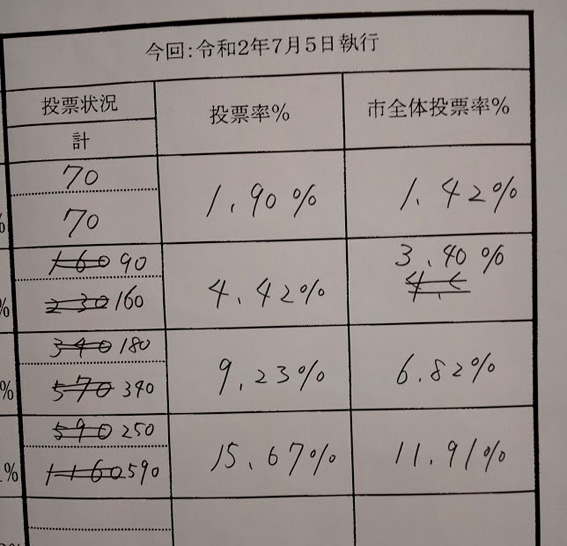 今回:令和2年7月5日執行
投票状況 投票率% 市全体投票率%
計
70
70 1.90% 1.42%
%
160 90 3.40%
230 160 4.42%
%
340 180
570 340 9.23% 6.82%
%
590 250
1160 590 15.67% 11.91%
%